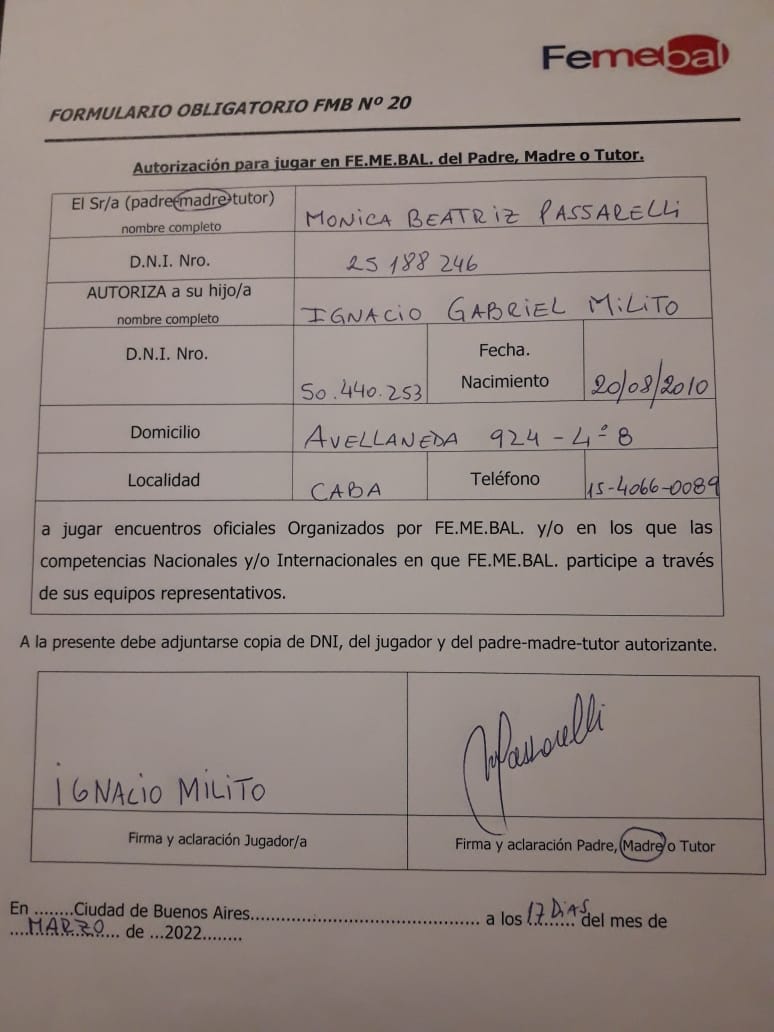 Femebal
FORMULARIO OBLIGATORIO FMB Nº 20
Autorización para jugar en FE.ME.BAL. del Padre, Madre o Tutor.
El Sr/a (padre-madre-tutor)
nombre completo
MONICA BEATRIZ PASSARELLI
D.N.I. Nro.
25 188 246
AUTORIZA a su hijo/a
nombre completo
IGNACIO GABRIEL MILITO
D.N.I. Nro.
50.440.253
Fecha.
Nacimiento
20/08/2010
Domicilio
AVELLANEDA 924 - 4º 8
Localidad
CABA
Teléfono
15-4066-0089
a jugar encuentros oficiales Organizados por FE.ME.BAL. y/o en los que las
competencias Nacionales y/o Internacionales en que FE.ME.BAL. participe a través
de sus equipos representativos.
A la presente debe adjuntarse copia de DNI, del jugador y del padre-madre-tutor autorizante.
IGNACIO MILITO
MPassarelli
Firma y aclaración Jugador/a
Firma y aclaración Padre, Madre o Tutor
En ........Ciudad de Buenos Aires............................................. a los 17 DIAS del mes de
....MARZO... de ...2022........